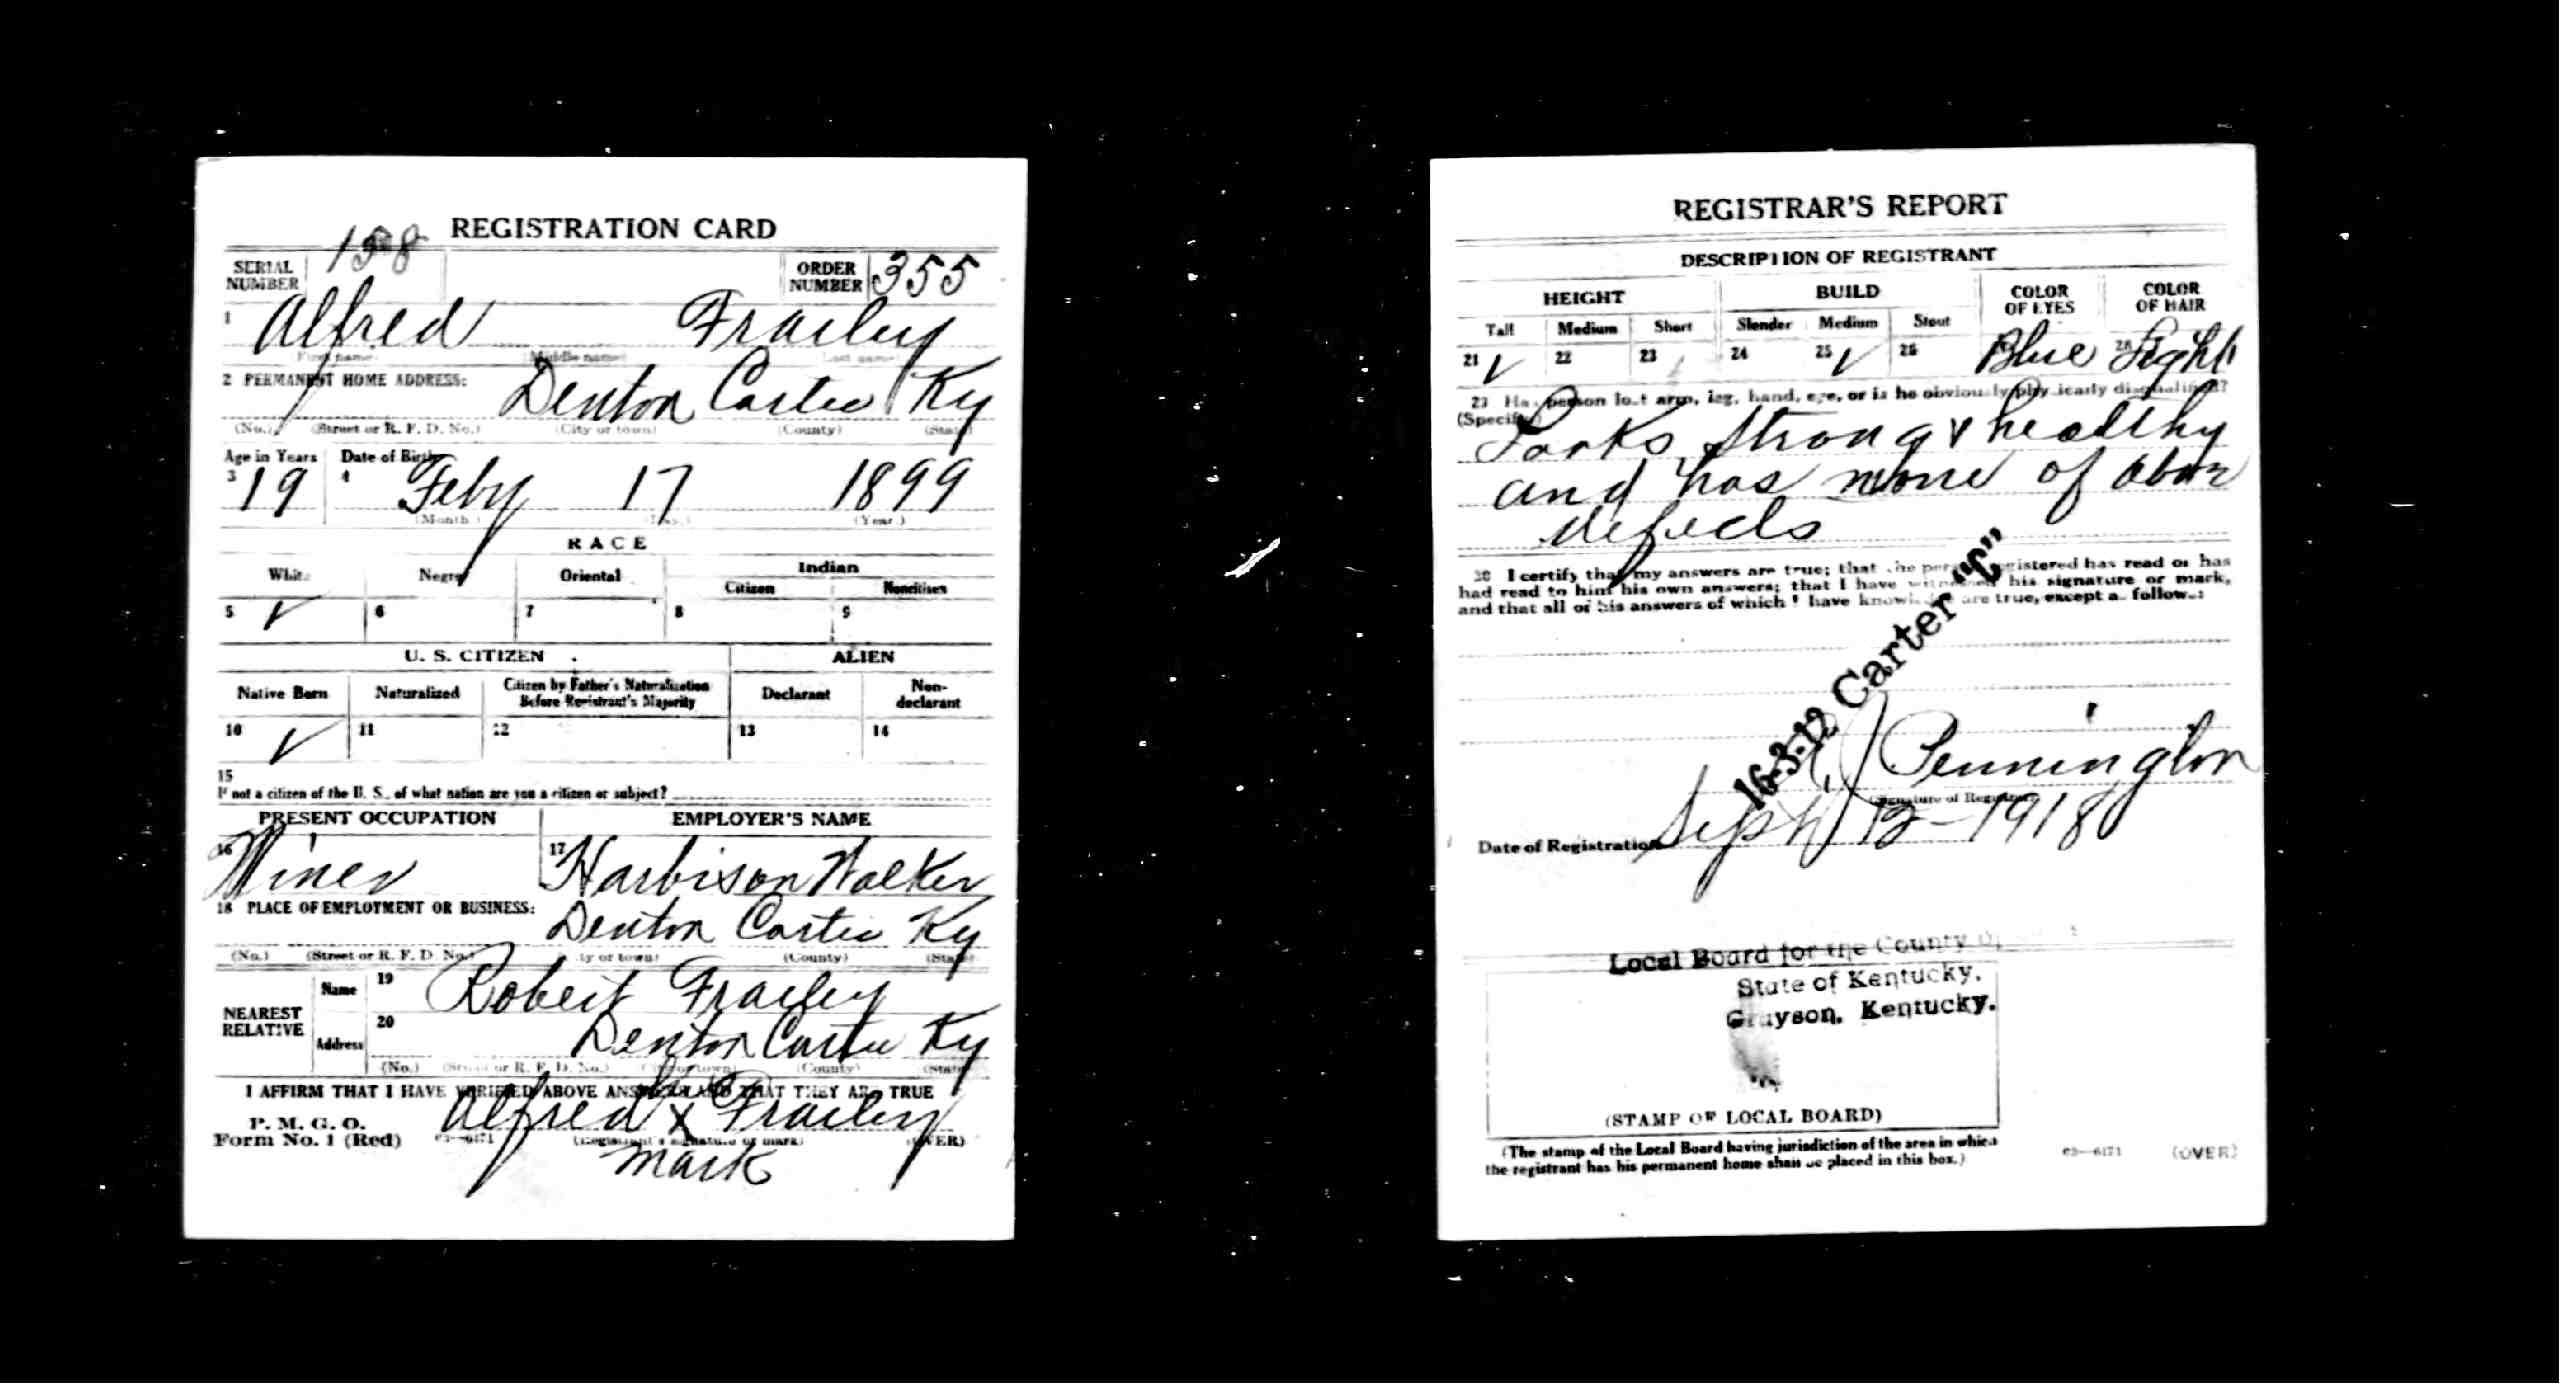 REGISTRATION CARD
SERIAL NUMBER 158 ORDER NUMBER 355
1 Alfred Frailey
First name (Middle name) Last name
2 PERMANENT HOME ADDRESS: Denton Carter Ky
(No.) (Street or R. F. D. No.) (City or town) (County) (State)
Age in Years Date of Birth
3 19 4 Feby 17 1899
(Month.) (Day.) (Year.)
RACE
White Negro Oriental Indian
Citizen Noncitizen
5 ✓ 6 7 8 9
U. S. CITIZEN ALIEN
Native Born Naturalized Citizen by Father's Naturalization Before Registrant's Majority Declarant Non-declarant
10 ✓ 11 12 13 14
15
If not a citizen of the U. S., of what nation are you a citizen or subject?
PRESENT OCCUPATION EMPLOYER'S NAME
16 Miner 17 Harbison Walker
18 PLACE OF EMPLOYMENT OR BUSINESS: Denton Carter Ky
(No.) (Street or R. F. D. No.) (City or town) (County) (State)
NEAREST RELATIVE Name 19 Robert Frailey
Address 20 Denton Carter Ky
(No.) (Street or R. F. D. No.) (City or town) (County) (State)
I AFFIRM THAT I HAVE VERIFIED ABOVE ANSWERS AND THAT THEY ARE TRUE
P. M. G. O.
Form No. 1 (Red) 03—6171 Alfred x Frailey
(Registrant's signature or mark) (OVER)
mark
REGISTRAR'S REPORT
DESCRIPTION OF REGISTRANT
HEIGHT BUILD COLOR OF EYES COLOR OF HAIR
Tall Medium Short Slender Medium Stout
21 ✓ 22 23 24 25 ✓ 26 Blue 28 Light
29 Has person lost arm, leg, hand, eye, or is he obviously physically disqualified?
(Specify.) Looks strong & healthy
and has none of above
defects
30 I certify that my answers are true; that the person registered has read or has
had read to him his own answers; that I have witnessed his signature or mark,
and that all of his answers of which I have knowledge are true, except as follows:
16-3-12 Carter "C"
J Pennington
(Signature of Registrar)
Date of Registration Sept 12-1918
Local Board for the County of
State of Kentucky.
Grayson, Kentucky.
(STAMP OF LOCAL BOARD)
(The stamp of the Local Board having jurisdiction of the area in which
the registrant has his permanent home shall be placed in this box.)
03—6171 (OVER)